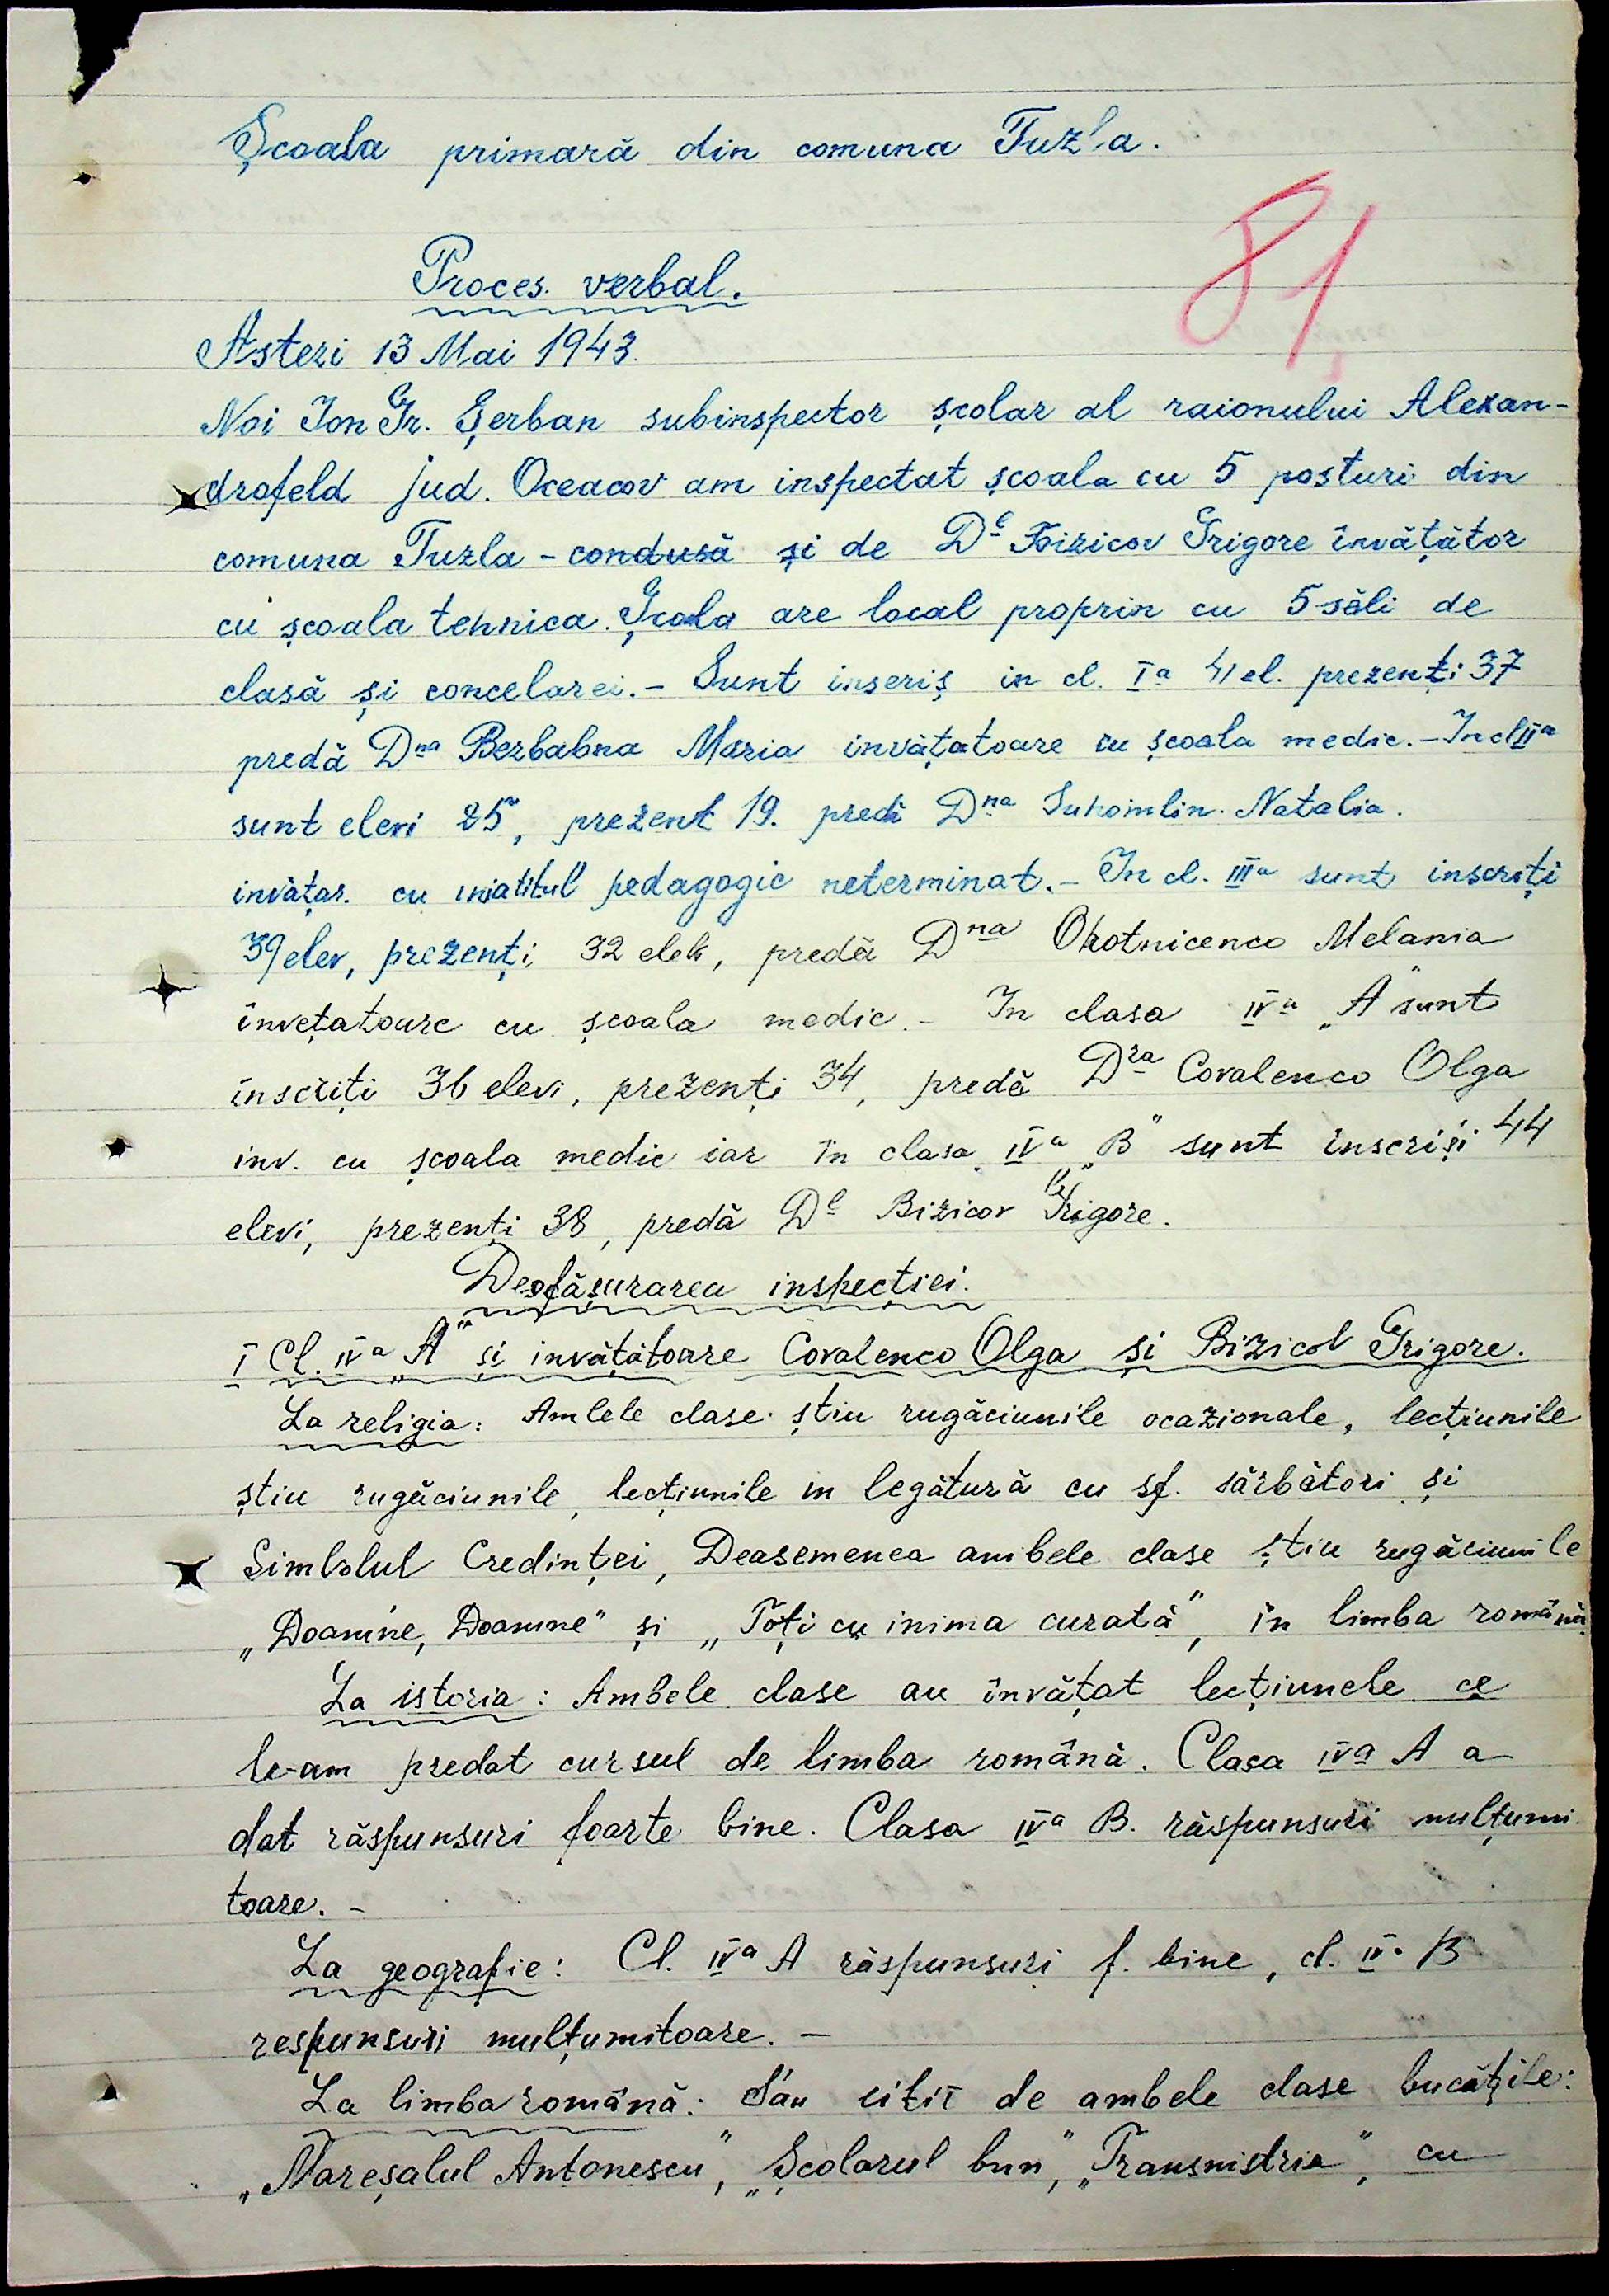 Școala primară din comuna Tuzla.
81
Proces. verbal.
Astezi 13 Mai 1943.
Noi Ion Gr. Șerban subinspector școlar al raionului Alexan-
drofeld jud. Oceacov am inspectat școala cu 5 posturi din
comuna Tuzla - condusă și de Dl Bizicov Grigore învățător
cu școala tehnica. Școala are local proprin cu 5 săli de
clasă și concelarei. - Sunt inseriș in cl. Ia 41 el. prezenți 37
predă Dna Berbabna Maria invățatoare cu școala medie. - In cl IIa
sunt elevi 25, prezent 19. predă Dna Suhomlin. Natalia.
invățar. cu iniatitul pedagogic neterminat. - In cl. IIIa sunt inscriți
39 elev, prezenți 32 elev, predă Dna Ohotnicenco Melania
învețatoare cu școala medie. - In clasa IVa „A" sunt
înscriți 36 elevi, prezenți 34, predă Dra Covalenco Olga
inv. cu școala medie iar în clasa IVa „B" sunt înscriși 44
elevi, prezenți 38, predă Dl Bizicov Grigore.
Desfășurarea inspecției.
I Cl. IVa „A" și invățătoare Covalenco Olga și Bizicov Grigore.
La religia: Amlele clase știu rugăciunile ocazionale, lecțiunile
știu rugăciunile, lecțiunile in legătură cu sf. sărbători și
Simbolul Credinței, Deasemenea ambele clase știu rugăciunile
„Doamne, Doamne" și „Toți cu inima curată", în limba română
La istoria: Ambele clase au învățat lecțiunele ce
le-am predat cursul de limba română. Clasa IVa A a-
dat răspunsuri foarte bine. Clasa IVa B. răspunsuri mulțumi
toare. -
La geografie: Cl. IVa A răspunsuri f. bine, cl. IVa B
respunsuri mulțumitoare. -
La limba română: S'au citit de ambele clase bucățile:
„Mareșalul Antonescu", „Școlarul bun", „Transnistria", cu